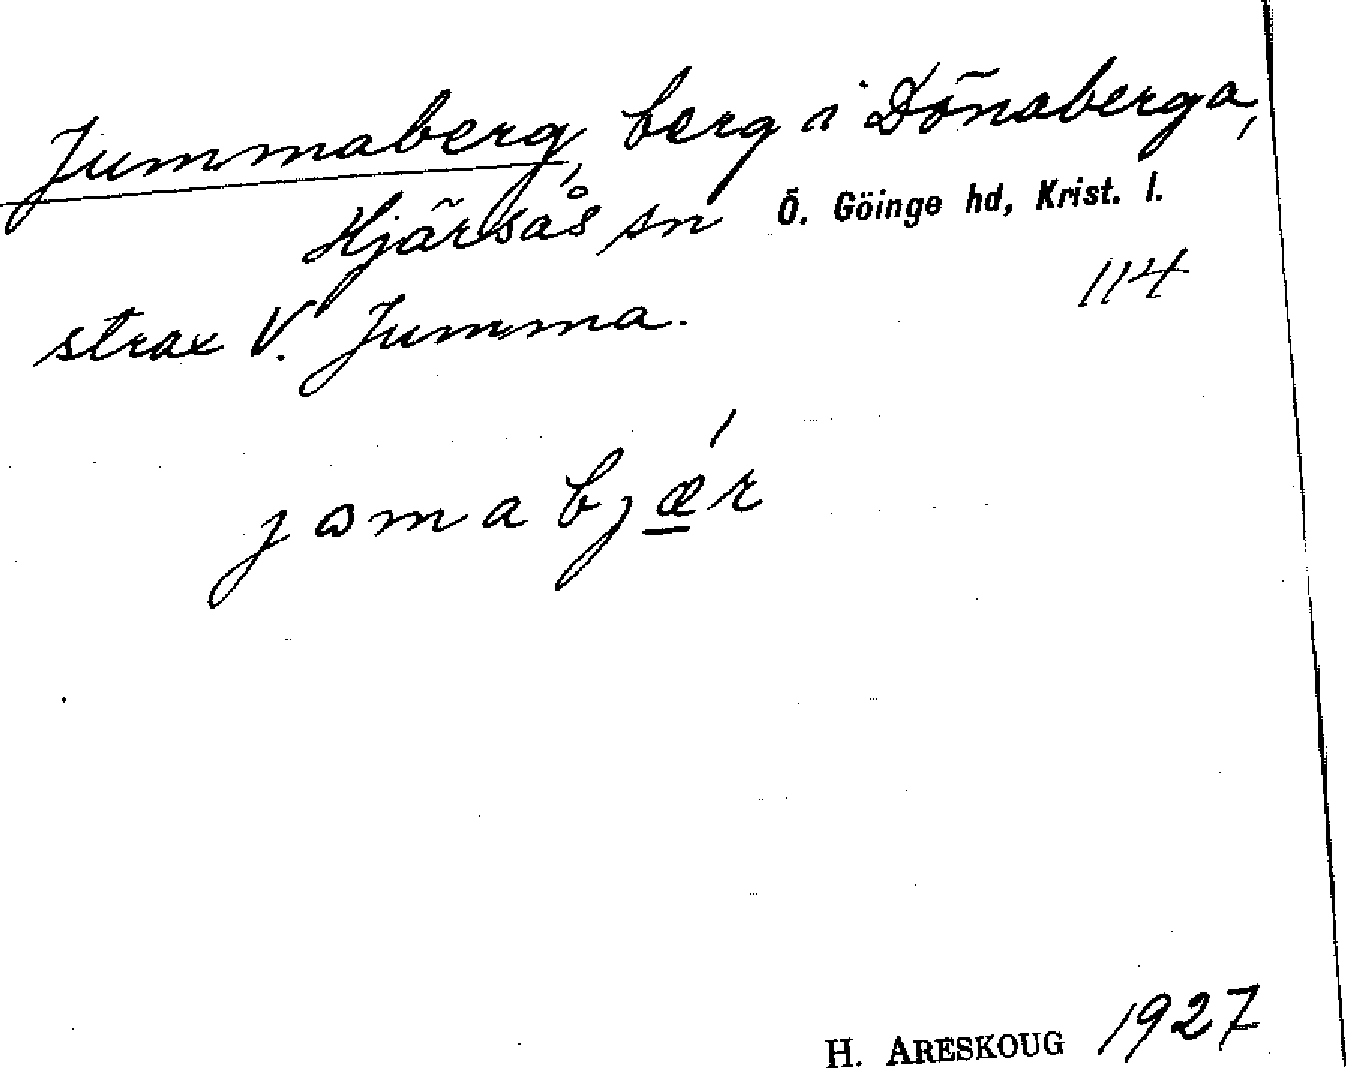 Jummaberg, berg i Dönaberga,
Hjärsås sn Ö. Göinge hd, Krist. l.
114
strax V. Jumma.
jomabjǽr
H. ARESKOUG 1927